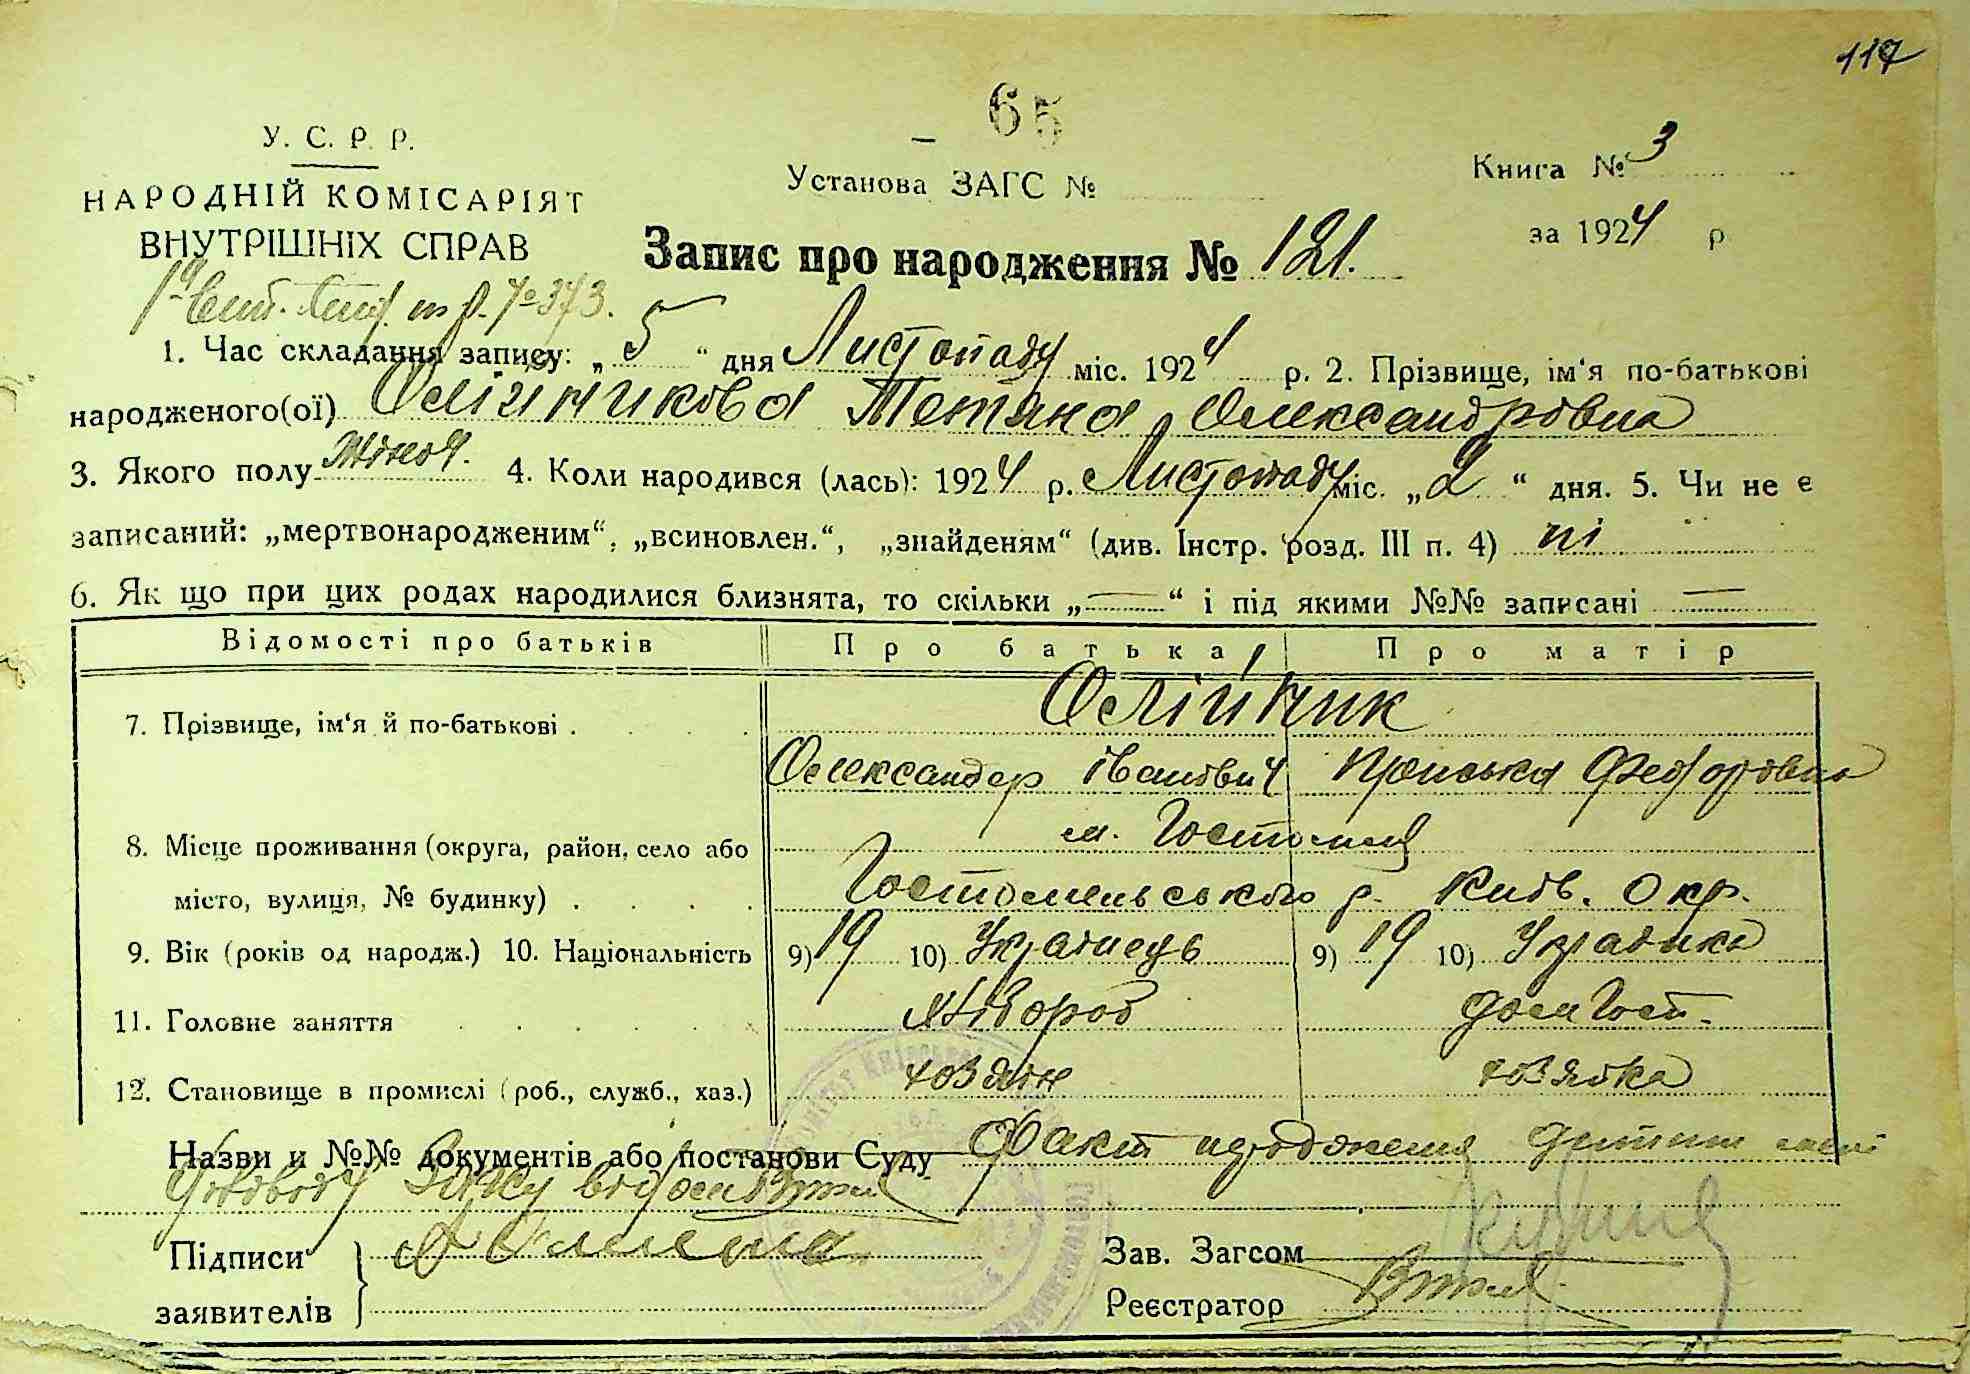 117
65
У. С. Р. Р.
Установа ЗАГС №
Книга № 3
НАРОДНІЙ КОМІСАРІЯТ
ВНУТРІШНІХ СПРАВ
за 1924 р
Запис про народження № 121.
1. Час складання запису: „ 5 “ дня Листопаду міс. 1924 р. 2. Прізвище, ім‘я по-батькові
народженого(ої) Олійникова Тетяна Олександровна
3. Якого полу Жіноч. 4. Коли народився (лась): 1924 р. Листопаду міс. „ 2 “ дня. 5. Чи не є
записаний: „мертвонародженим“, „всиновлен.“, „знайденям“ (див. Інстр. розд. III п. 4) ні
6. Як що при цих родах народилися близнята, то скільки „—“ і під якими №№ записані —
Відомості про батьків Про батька Про матір
7. Прізвище, ім‘я й по-батькові . Олійник
Олександер Іванович Пріська Федоровна
8. Місце проживання (округа, район, село або м. Гостомля
місто, вулиця, № будинку) . Гостомельського р. Київ. Окр.
9. Вік (років од народж.) 10. Національність 9) 19 10) Українець 9) 19 10) Українка
11. Головне заняття Хлібороб Дом Госп.
12. Становище в промислі (роб., служб., хаз.) хозяїн хозяйка
Назви и №№ документів або постанови Суду Факт народження дитини мені
Підписи
заявителів
Зав. Загсом
Реєстратор